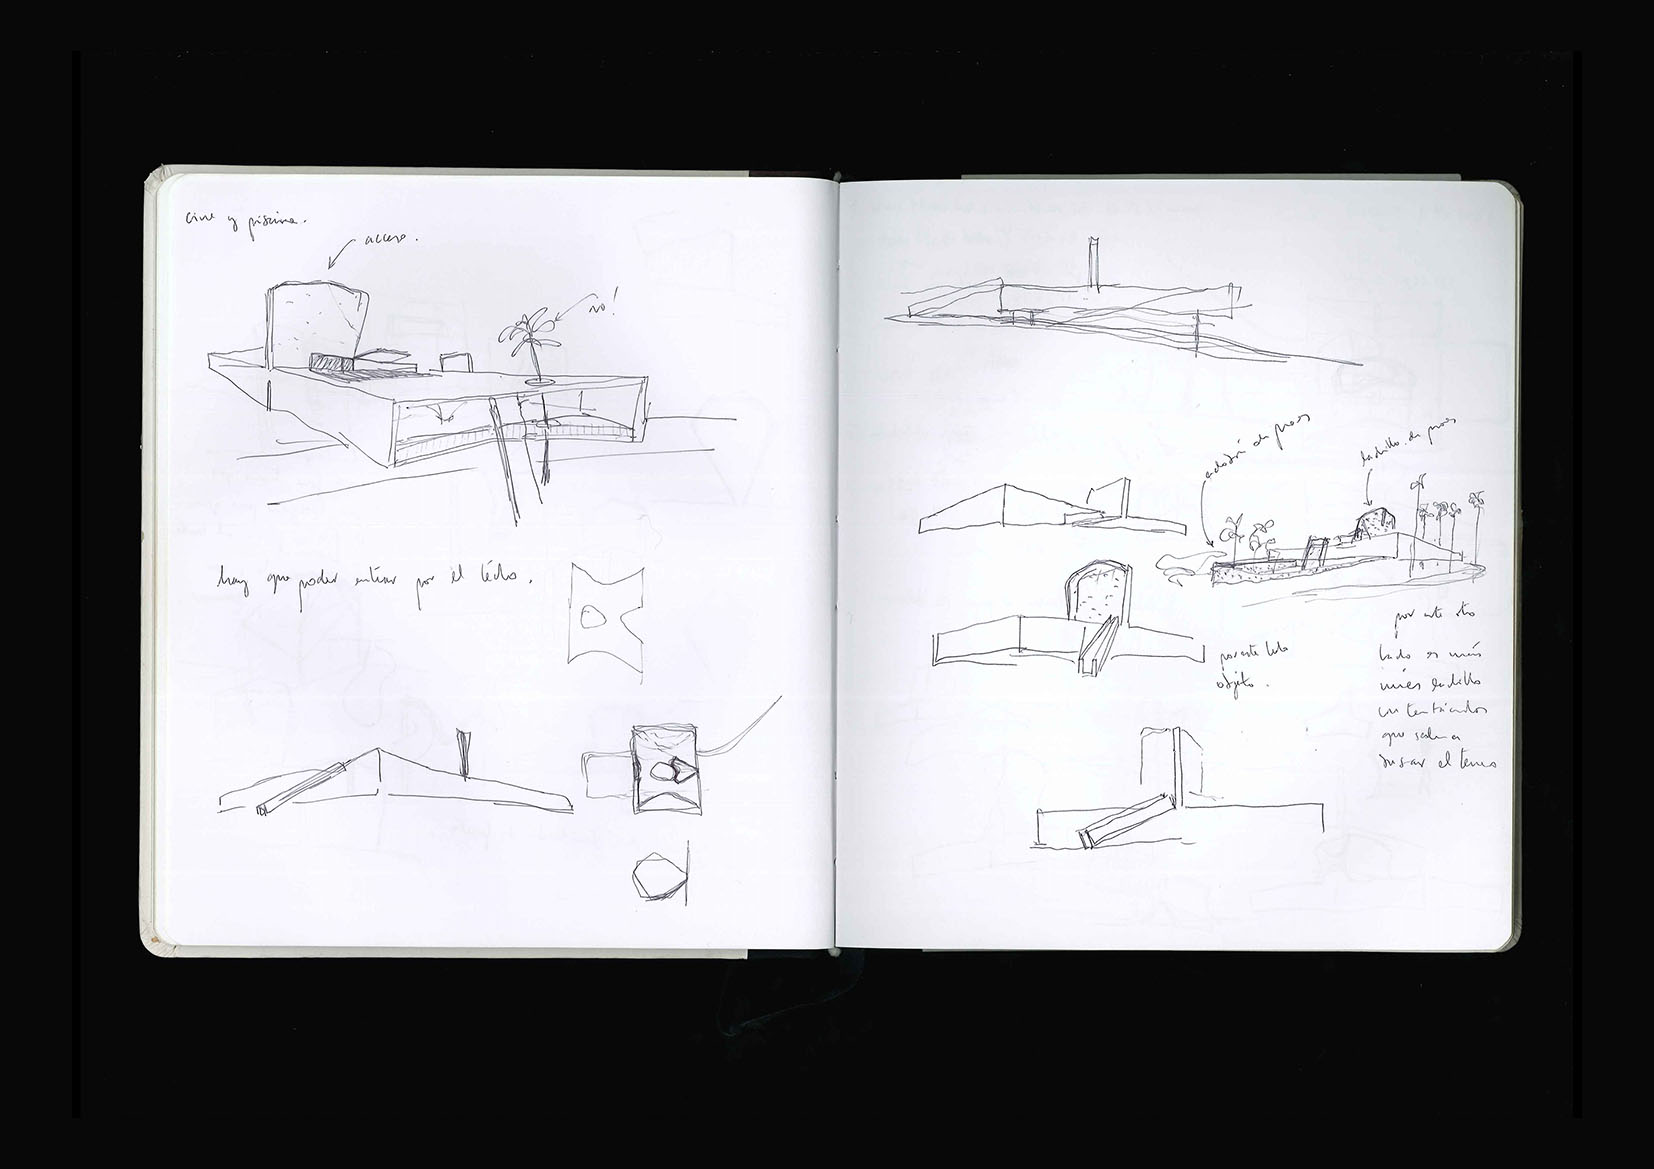 cine y piscina.
acceso.
no!
hay que poder entrar por el techo.
de pozos
ladrillo de pozos
por este lado
objeto.
por este otro
lado es más
ladillo
con tentáculos
que salen a
el terreno